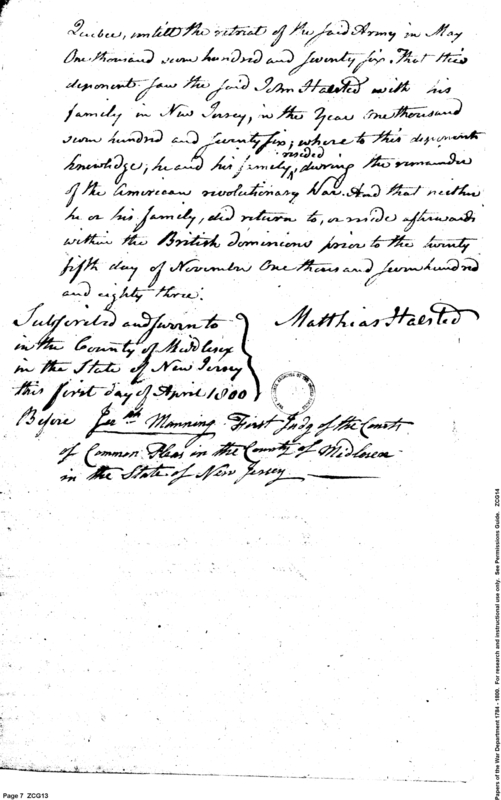 Quebec, untill the retreat of the said Army in May
One thousand seven hundred and seventy six. That this
deponent saw the said John Halsted with his
family in New Jersey, in the Year One thousand
seven hundred and seventy six; where to this deponents
knowledge, he and his family, resided during the remainder
of the American revolutionary War. And that neither
he or his family, did return to, or reside afterwards
within the British dominions prior to the twenty
fifth day of November One thousand seven hundred
and eighty three.
Matthias Halsted
Subscribed and sworn to
in the County of Middlesex
in the State of New Jersey
this first day of April 1800
Before Manning First Judg of the Court
of Common Pleas in the County of Midlesex
in the State of New Jersey
Page 7 ZCG13
Papers of the War Department 1784 - 1800. For research and instructional use only. See Permissions Guide. ZCG14